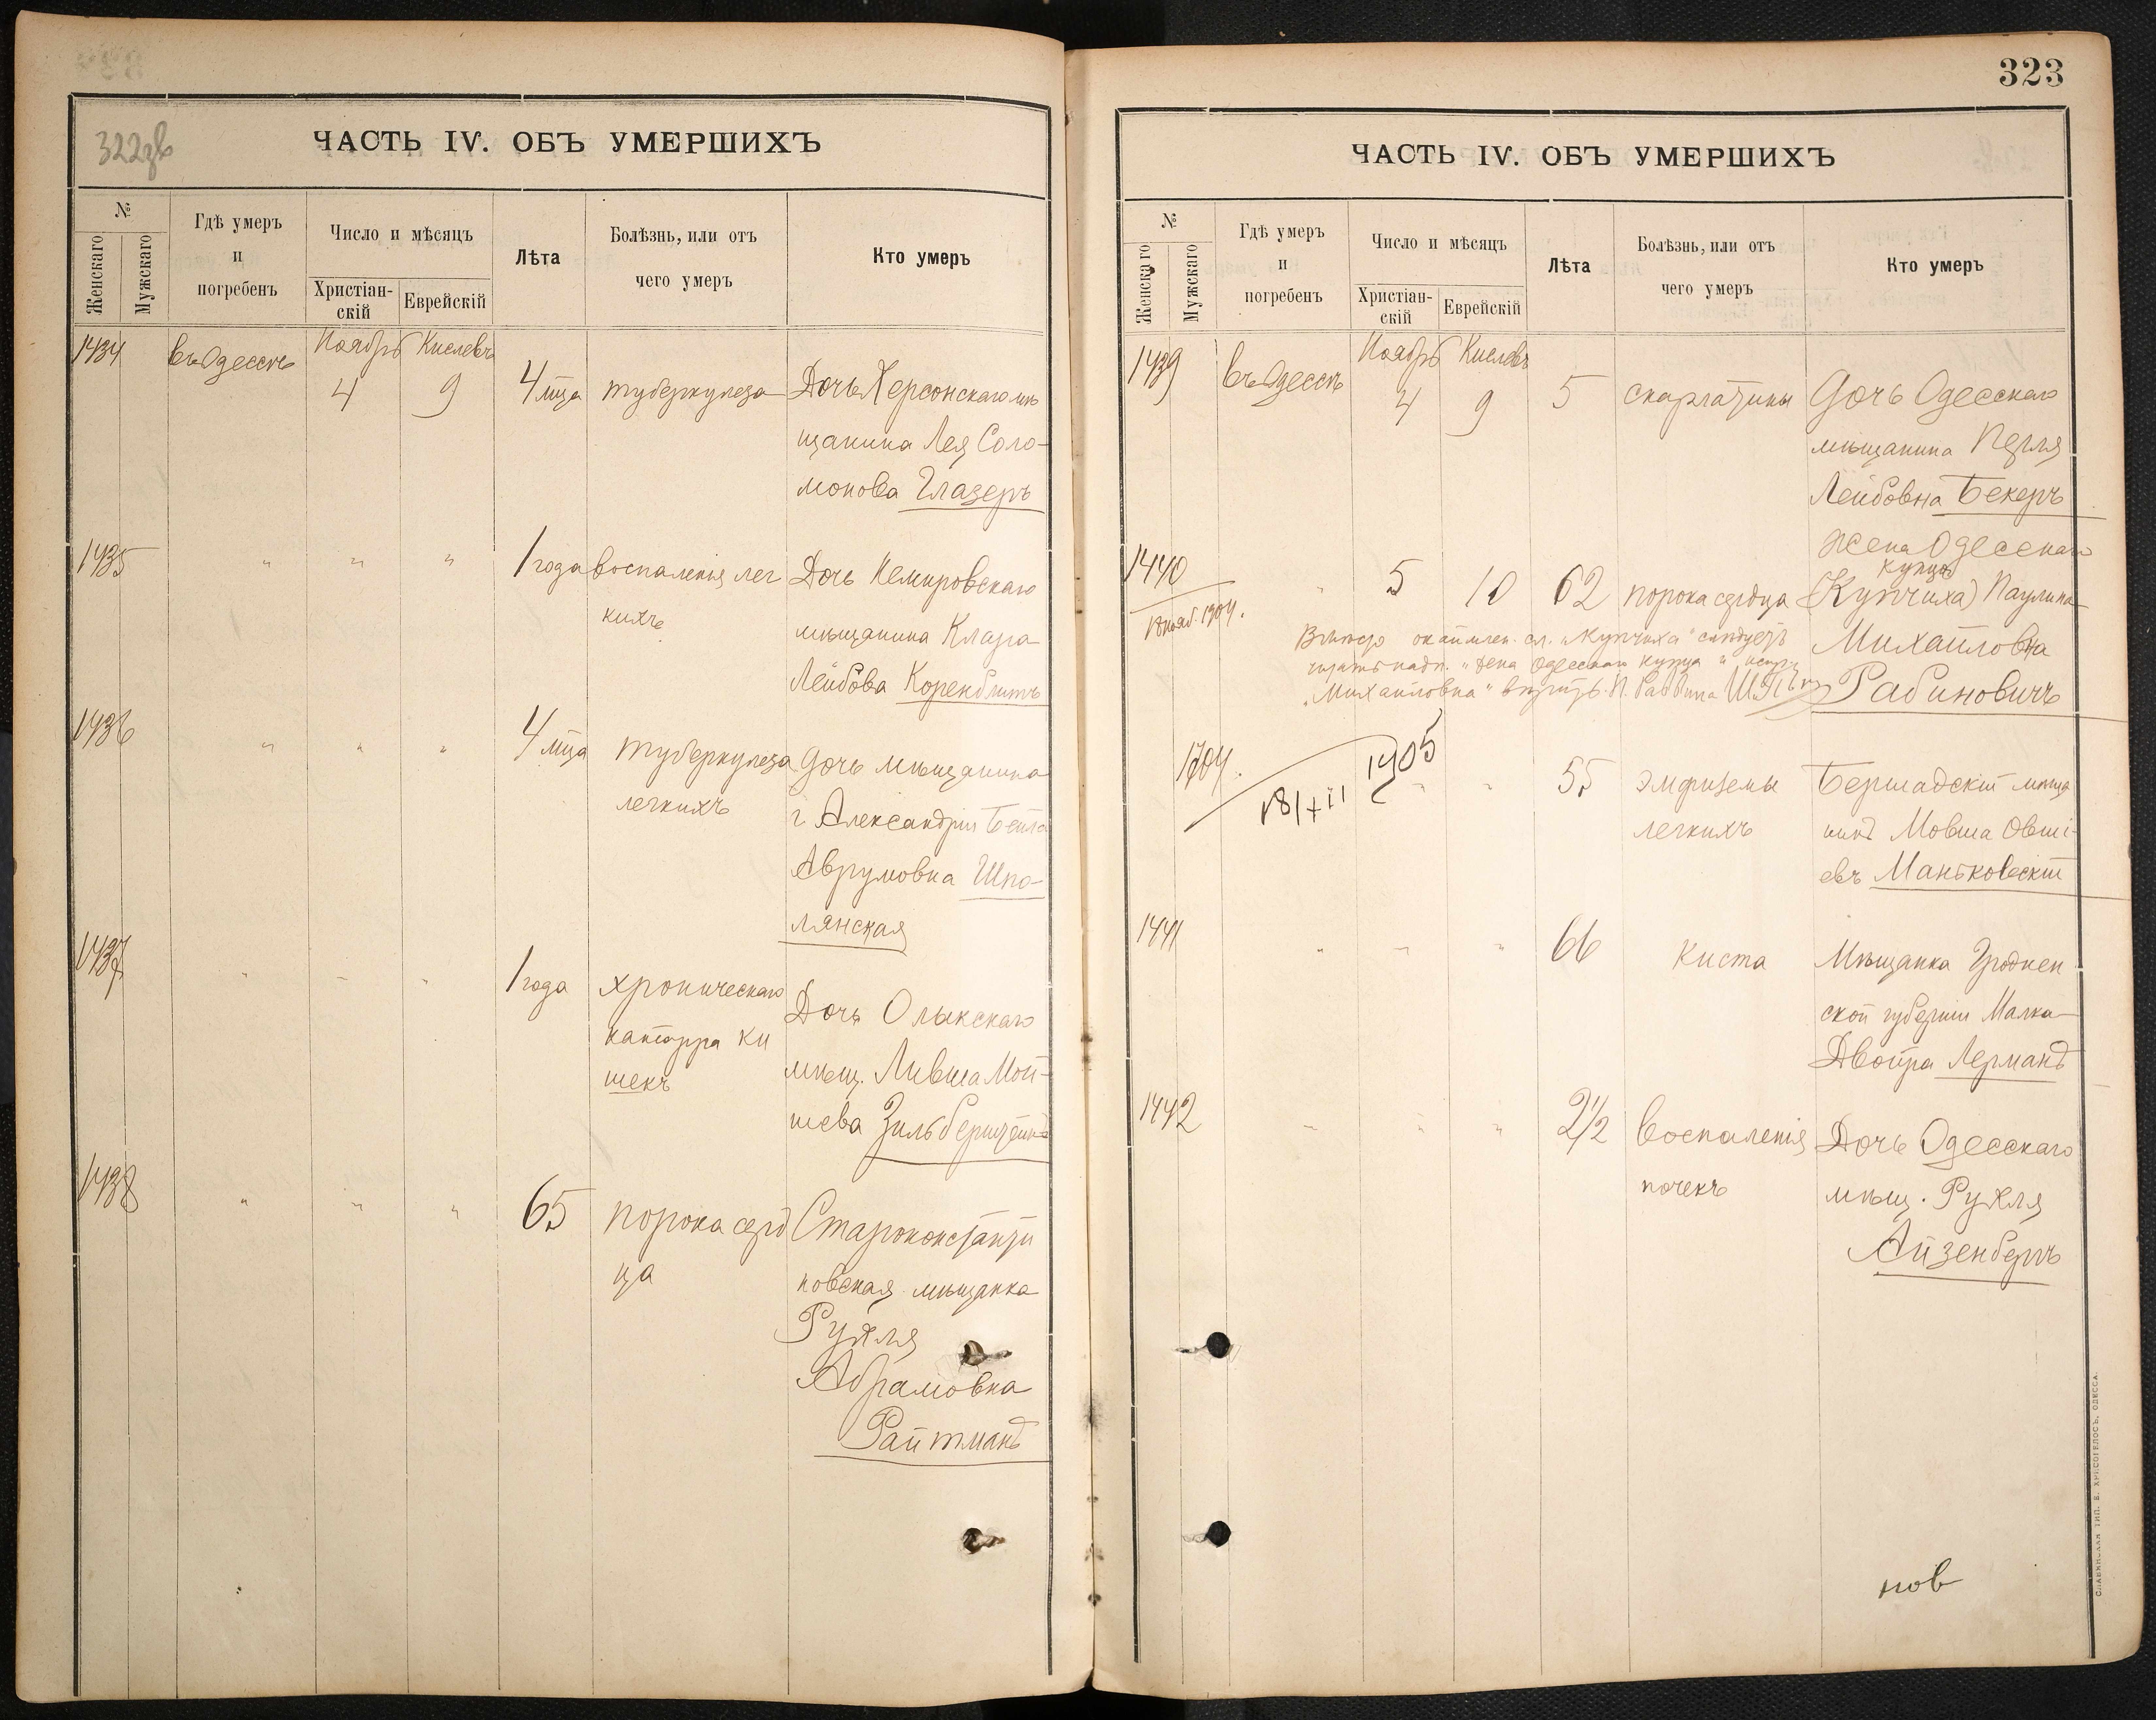 322зв
ЧАСТЬ IV. ОБЪ УМЕРШИХЪ
№
Женскаго
Мужскаго
Гдѣ умеръ
и
погребенъ
Число и мѣсяцъ
Христіан-
скій
Еврейскій
Лѣта
Болѣзнь, или отъ
чего умеръ
Кто умеръ
1434 въ Одессѣ Ноябрь Кислевъ
4 9 4 мца туберкулеза Дочь Херсонскаго мѣ
щанина Лея Соло-
монова Глазеръ
1435 " " " 1 года воспаленія лег Дочь Немировскаго
кихъ
мѣщанина Клара
Лейбова Коренблитъ
1436 " " " 4 мца туберкулеза дочь мѣщанина
легкихъ
г Александріи Бейла
Аврумовна Шпо-
лянская
1437 " " " 1 года хроническаго
Дочь Олыкскаго
катарра ки
шекъ
мѣщ. Ливша Мой-
шева Зильберштейнъ
1438 " " " 65 порока серд Староконстанти
ца
новская мѣщанка
Рухля
Абрамовна
Райтманъ
323
ЧАСТЬ IV. ОБЪ УМЕРШИХЪ
№
Женскаго
Мужскаго
Гдѣ умеръ
и
погребенъ
Число и мѣсяцъ
Христіан-
скій
Еврейскій
Лѣта
Болѣзнь, или отъ
чего умеръ
Кто умеръ
1439 въ Одессѣ Ноябрь Кислевъ
4 9 5 скарлатины Дочь Одесскаго
мѣщанина Перля
Лейбовна Бекеръ
Жена Одесскаго
купца
1440 " 5 10 62 порока сердца (Купчиха) Паулина
Михайловна
Рабиновичъ
сл. "Купчиха" слѣдуетъ
читать надп. "Жена Одесскаго купца"
"Михайловна" вѣрить. И. Раввина
1704. 18/XII 1905
" " 55 эмфиземы Бершадскій мѣща
легкихъ
нинъ Мовша Овші-
евъ Маньковскій
1441 " " " 66 Киста Мѣщанка Гроднен
ской губерніи Малка
Двойра Лерманъ
1442 " " " 2 1/2 Воспаленія Дочь Одесскаго
почекъ
мѣщ. Рухля
Айзенбергъ
нов
СЛАВЯНСКАЯ ТИП. Е. ХРИСОГЕЛОСЪ, ОДЕССА.